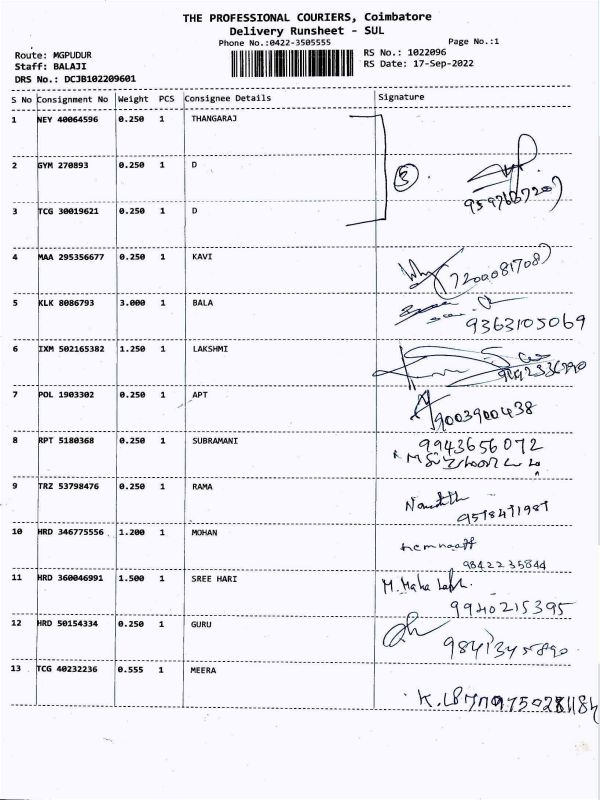 THE PROFESSIONAL COURIERS, Coimbatore
Delivery Runsheet - SUL
Phone No.:0422-3505555 Page No.:1
Route: MGPUDUR RS No.: 1022096
Staff: BALAJI RS Date: 17-Sep-2022
DRS No.: DCJB102209601
S No Consignment No Weight PCS Consignee Details Signature
1 NEY 40064596 0.250 1 THANGARAJ
2 GYM 270893 0.250 1 D 3
3 TCG 30019621 0.250 1 D
4 MAA 295356677 0.250 1 KAVI 7200081708
5 KLK 8086793 3.000 1 BALA
9363105069
6 IXM 502165382 1.250 1 LAKSHMI
7 POL 1903302 0.250 1 APT
9003900438
8 RPT 5180368 0.250 1 SUBRAMANI 9943656072
9 TRZ 53798476 0.250 1 RAMA
10 HRD 346775556 1.200 1 MOHAN
9842235844
11 HRD 360046991 1.500 1 SREE HARI M. Maha
9940215395
12 HRD 50154334 0.250 1 GURU
13 TCG 40232236 0.555 1 MEERA